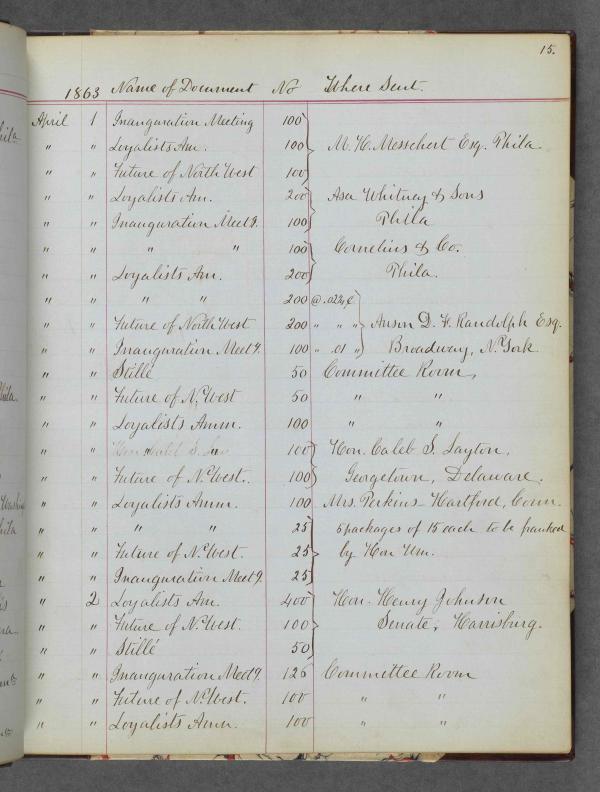 15.
1863 Name of Document No Where Sent.
April 1 Inauguration Meeting 100
" " Loyalists Am. 100 M. H. Messchert Esq. Phila.
" " Future of North West 100
" " Loyalists Am. 200 Asa Whitney & Sons
" " Inauguration Meet'g. 100 Phila
" " " " 100 Cornelius & Co.
" " Loyalists Am. 200 Phila.
" " " " 200 @
" " Future of North West 200 " " " Anson D. F. Randolph Esq.
" " Inauguration Meet'g. 100 " .01 " Broadway, N. York
" " Stillé 50 Committee Room,
" " Future of No West 50 " "
" " Loyalists Amm. 100 " "
" " " " 100 Hon. Caleb S. Layton,
" " Future of No West. 100 Georgetown, Delaware.
" " Loyalists Amm. 100 Mrs Perkins Hartford, Conn.
" " " " 25 5 packages of 15 each to be franked
" " Future of No West. 25 by Hon Wm.
" " Inauguration Meet'g. 25
" 2 Loyalists Am. 400 Hon. Henry Johnson
" " Future of No West. 100 Senate, Harrisburg.
" " Stillé 50
" " Inauguration Meet'g. 125 Committee Room
" " Future of No West. 100 " "
" " Loyalists Amm. 100 " "